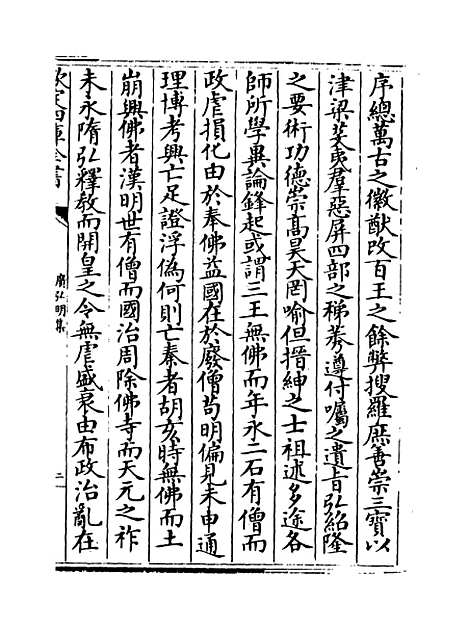 序總萬古之徽猷改百王之餘弊搜羅庶善崇三寶以
津梁芟夷羣惡屏四部之稊莠遵付囑之遺旨弘紹隆
之要術功德崇高昊天罔喻但搢紳之士祖述多途各
師所學異論鋒起或謂三王無佛而年永二石有僧而
政虐損化由於奉佛益國在於廢僧苟明偏見未申通
理博考興亡足證浮偽何則亡秦者胡亥時無佛而土
崩興佛者漢明世有僧而國治周除佛寺而天元之祚
未永隋弘釋教而開皇之令無虐盛衰由布政治亂在
欽定四庫全書
廣弘明集
二